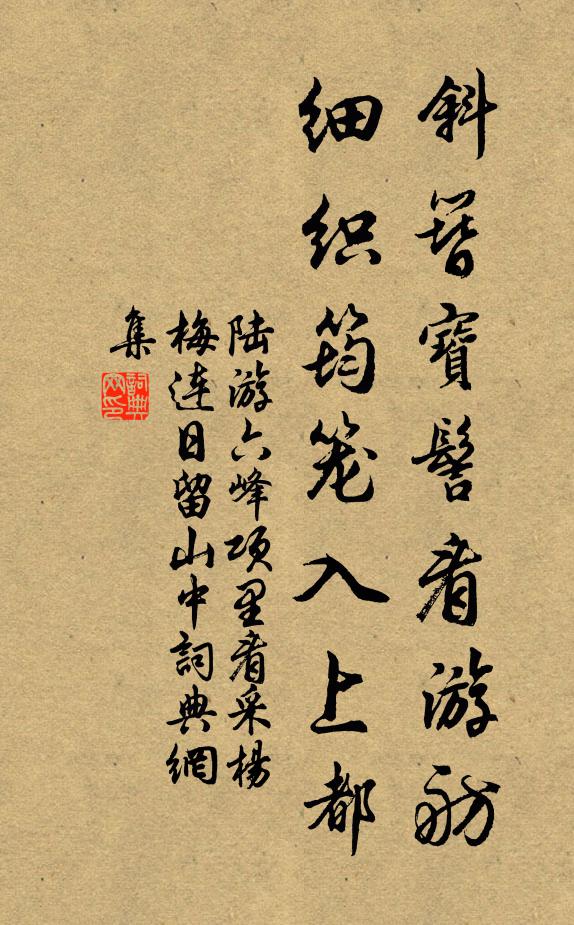 斜簪寶髻看游舫
细织筠笼入上都
陆游六峰项里看采楊
梅连日留山中詞典網
集
詞典